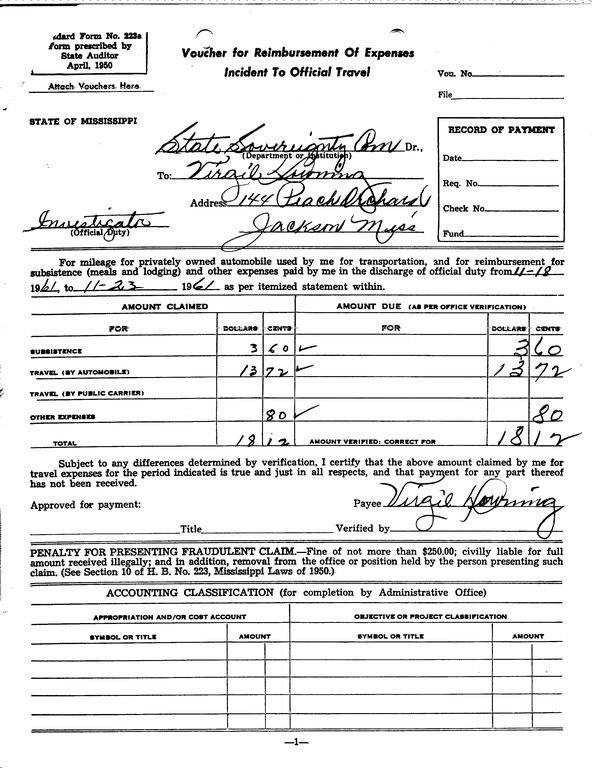 dard Form No. 223a
form prescribed by
State Auditor
April, 1950
Attach Vouchers Here
Voucher for Reimbursement Of Expenses
Incident To Official Travel
Vou. No.
File
STATE OF MISSISSIPPI
State Sovereignty Com Dr.,
(Department or Institution)
To: Virgil Downing
Address 144 Peach Orchard
Jackson Miss
Investigator
(Official Duty)
RECORD OF PAYMENT
Date
Req. No.
Check No.
Fund
For mileage for privately owned automobile used by me for transportation, and for reimbursement for
subsistence (meals and lodging) and other expenses paid by me in the discharge of official duty from 11-18
1961, to 11-23 1961 as per itemized statement within.
AMOUNT CLAIMED AMOUNT DUE (AS PER OFFICE VERIFICATION)
FOR DOLLARS CENTS FOR DOLLARS CENTS
SUBSISTENCE 3 60 ✓ 3 60
TRAVEL (BY AUTOMOBILE) 13 72 ✓ 13 72
TRAVEL (BY PUBLIC CARRIER)
OTHER EXPENSES 80 ✓ 80
TOTAL 18 12 AMOUNT VERIFIED: CORRECT FOR 18 12
Subject to any differences determined by verification, I certify that the above amount claimed by me for
travel expenses for the period indicated is true and just in all respects, and that payment for any part thereof
has not been received.
Approved for payment: Payee Virgil Downing
Title Verified by
PENALTY FOR PRESENTING FRAUDULENT CLAIM.—Fine of not more than $250.00; civilly liable for full
amount received illegally; and in addition, removal from the office or position held by the person presenting such
claim. (See Section 10 of H. B. No. 223, Mississippi Laws of 1950.)
ACCOUNTING CLASSIFICATION (for completion by Administrative Office)
APPROPRIATION AND/OR COST ACCOUNT OBJECTIVE OR PROJECT CLASSIFICATION
SYMBOL OR TITLE AMOUNT SYMBOL OR TITLE AMOUNT
—1—